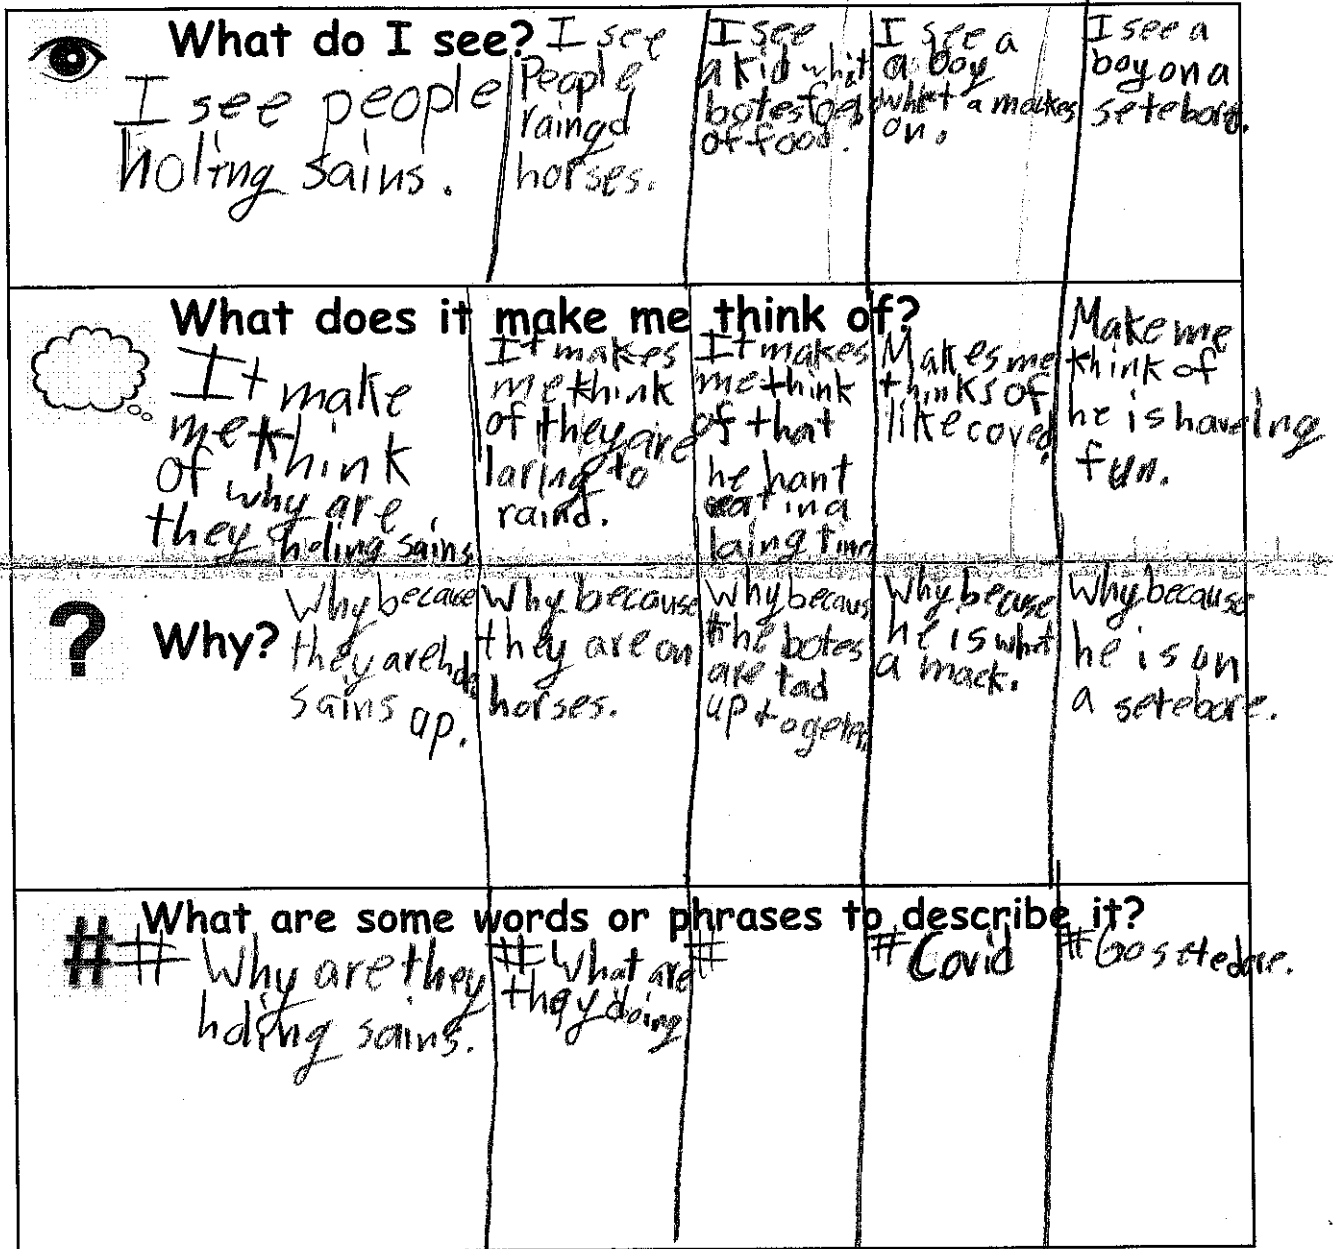 What do I see?
I see people
holing sains.
I see
People
raingd
horses.
I see
a kid whit
botes
of food.
I see a
a boy
whet a mackes
on.
I see a
boy on a
setebore.
What does it make me think of?
It make
me think
of why are
they holing sains
It makes
me think
of they are
laring to
raind.
It makes
me think
of that
he hant
eat in a
laing time
Makes me
thinks of
like coved.
Make me
think of
he is haveing
fun.
Why?
Why because
they are
sains up.
Why because
they are on
horses.
Why becaus
the botes
are tad
up together
Why becuse
he is what
a mack.
Why because
he is on
a setebore.
What are some words or phrases to describe it?
# Why are they
holing sains.
# What are
they doing
#
# Covid
# Go